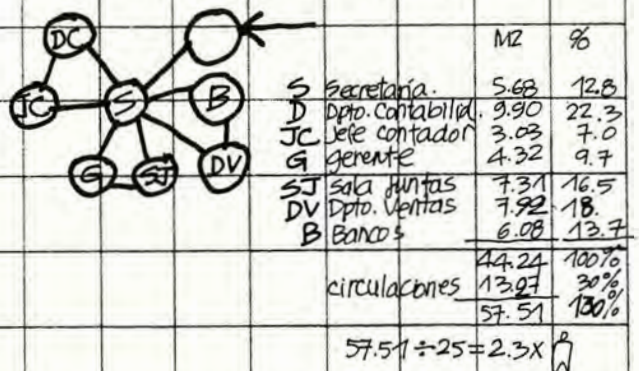 DC
JC
S
B
G
SJ
DV
M2 %
S Secretaria. 5.68 12.8
D Dpto. Contabilid. 9.90 22.3
JC Jefe contador 3.03 7.0
G gerente 4.32 9.7
SJ sala juntas 7.31 16.5
DV Dpto. Ventas 7.92 18.
B Bancos 6.08 13.7
44.24 100%
circulaciones 13.27 30%
57.51 130%
57.51 ÷ 25 = 2.3 X